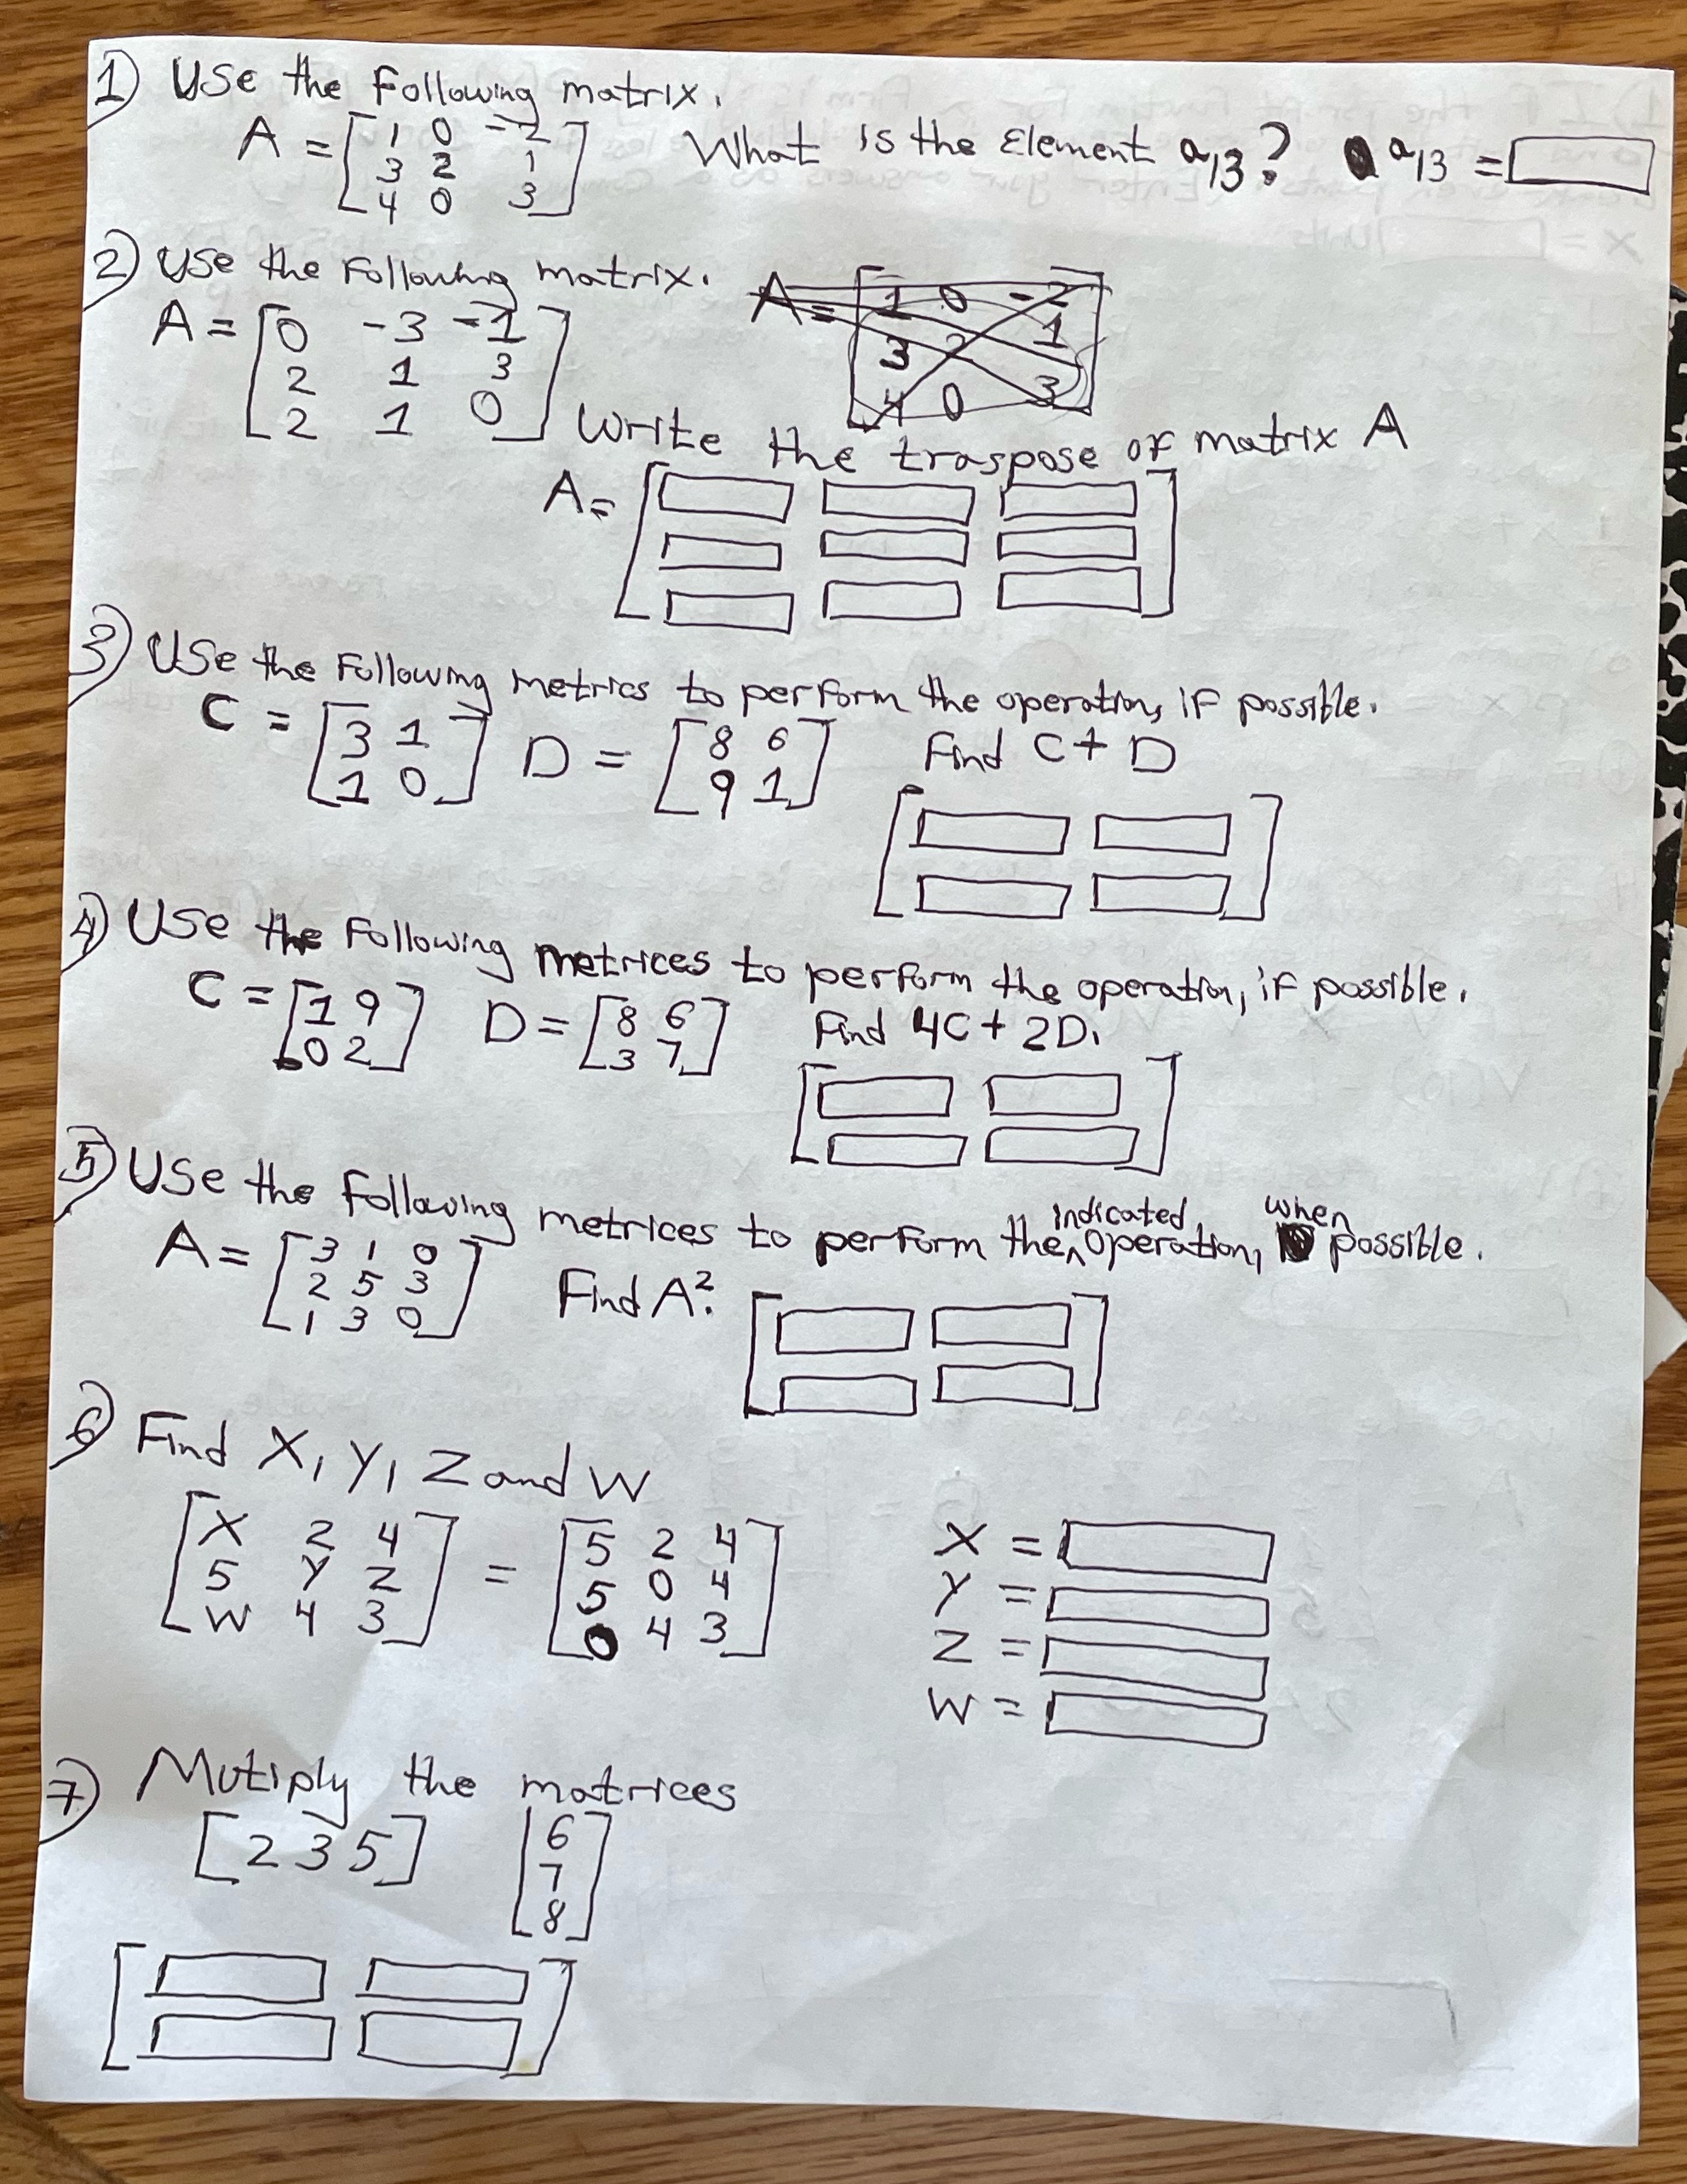 1) Use the Following matrix.
A = [ 1 0 -2 What is the Element a13? a13 =
3 2 1
4 0 3 ]
2) Use the Following matrix. A = [ 1 0 -2
A = [ 0 -3 -1 3 2 1
2 1 3 4 0 3 ]
2 1 0 ] Write the traspose of matrix A
A = [ ]
3) Use the Following metrics to perform the operation, if possible.
C = [ 3 1 D = [ 8 6 Find C + D
1 0 ] 9 1 ]
[ ]
4) Use the Following metrices to perform the operation, if possible.
C = [ 1 9 D = [ 8 6 Find 4C + 2D.
0 2 ] 3 7 ]
[ ]
5) Use the following metrices to perform the indicated operation, when possible.
A = [ 3 1 0
2 5 3 Find A².
1 3 0 ] [ ]
6) Find X, Y, Z and W
[ X 2 4 = [ 5 2 4 X =
5 Y Z 5 0 4 Y =
W 4 3 ] 0 4 3 ] Z =
W =
7) Mutiply the matrices
[ 2 3 5 ] [ 6
7
8 ]
[ ]